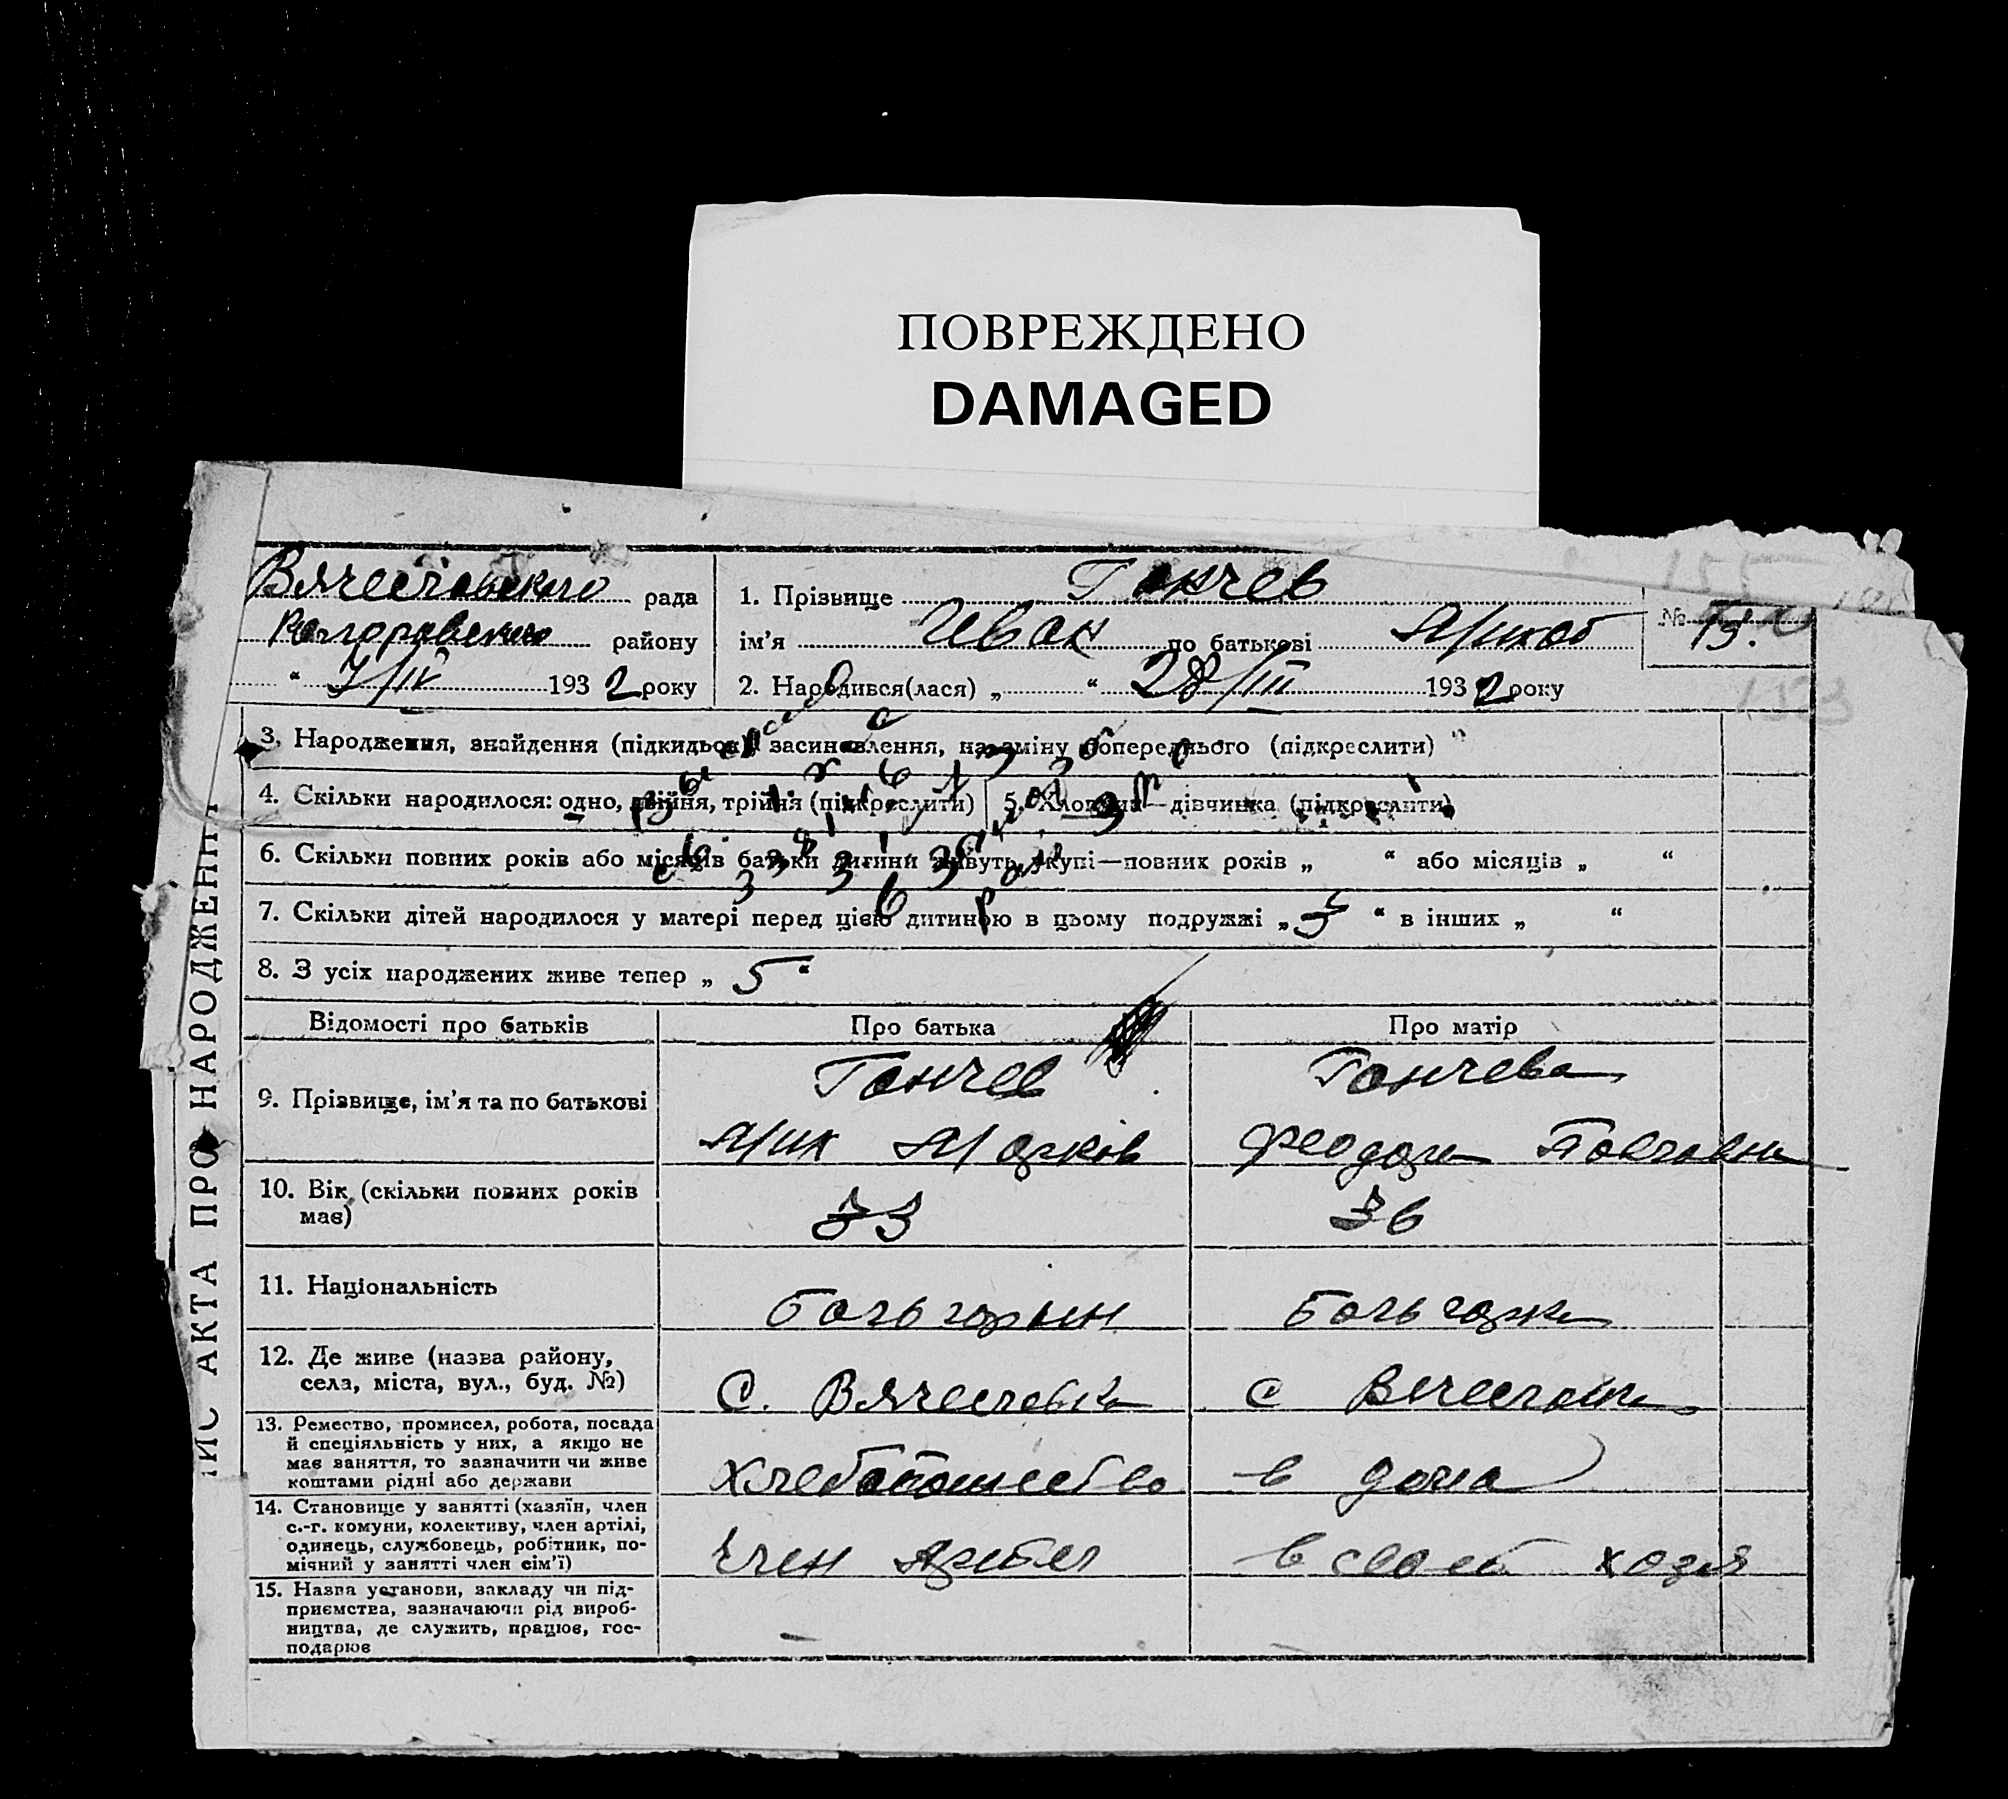 ПОВРЕЖДЕНО
DAMAGED
рада
району
" 7/IV 1932 року
1. Прізвище Гончев
ім'я Иван по батькові Михов
2. Народився(лася) „ " 28/III 1932 року
№ 15.
3. Народження, знайдення (підкидьок) засиновлення, на зміну попереднього (підкреслити)
4. Скільки народилося: одно, двійня, трійня (підкреслити)
5. Хлопчик — дівчинка (підкреслити)
6. Скільки повних років або місяців батьки дитини живуть укупі—повних років „ " або місяців „ "
7. Скільки дітей народилося у матері перед цією дитиною в цьому подружжі „ " в інших „ "
8. З усіх народжених живе тепер „ 5 "
Відомості про батьків
Про батька
Про матір
9. Прізвище, ім'я та по батькові
Гончев
Мих Марков
Гончева
Феодора
10. Вік (скільки повних років
має)
33
36
11. Національність
Болъгарин
Болъгарка
12. Де живе (назва району,
села, міста, вул., буд. №)
С. Вячеславка
с Вячеславка
13. Ремество, промисел, робота, посада
й спеціяльність у них, а якщо не
має заняття, то зазначити чи живе
коштами рідні або держави
Хлебопашество
в дома
14. Становище у занятті (хазяїн, член
с.-г. комуни, колективу, член артілі,
одинець, службовець, робітник, по-
мічний у занятті член сім'ї)
член Артел
в своей хозя
15. Назва установи, закладу чи під-
приємства, зазначаючи рід вироб-
ництва, де служить, працює, гос-
подарює
АКТА ПРО НАРОДЖЕННЯ